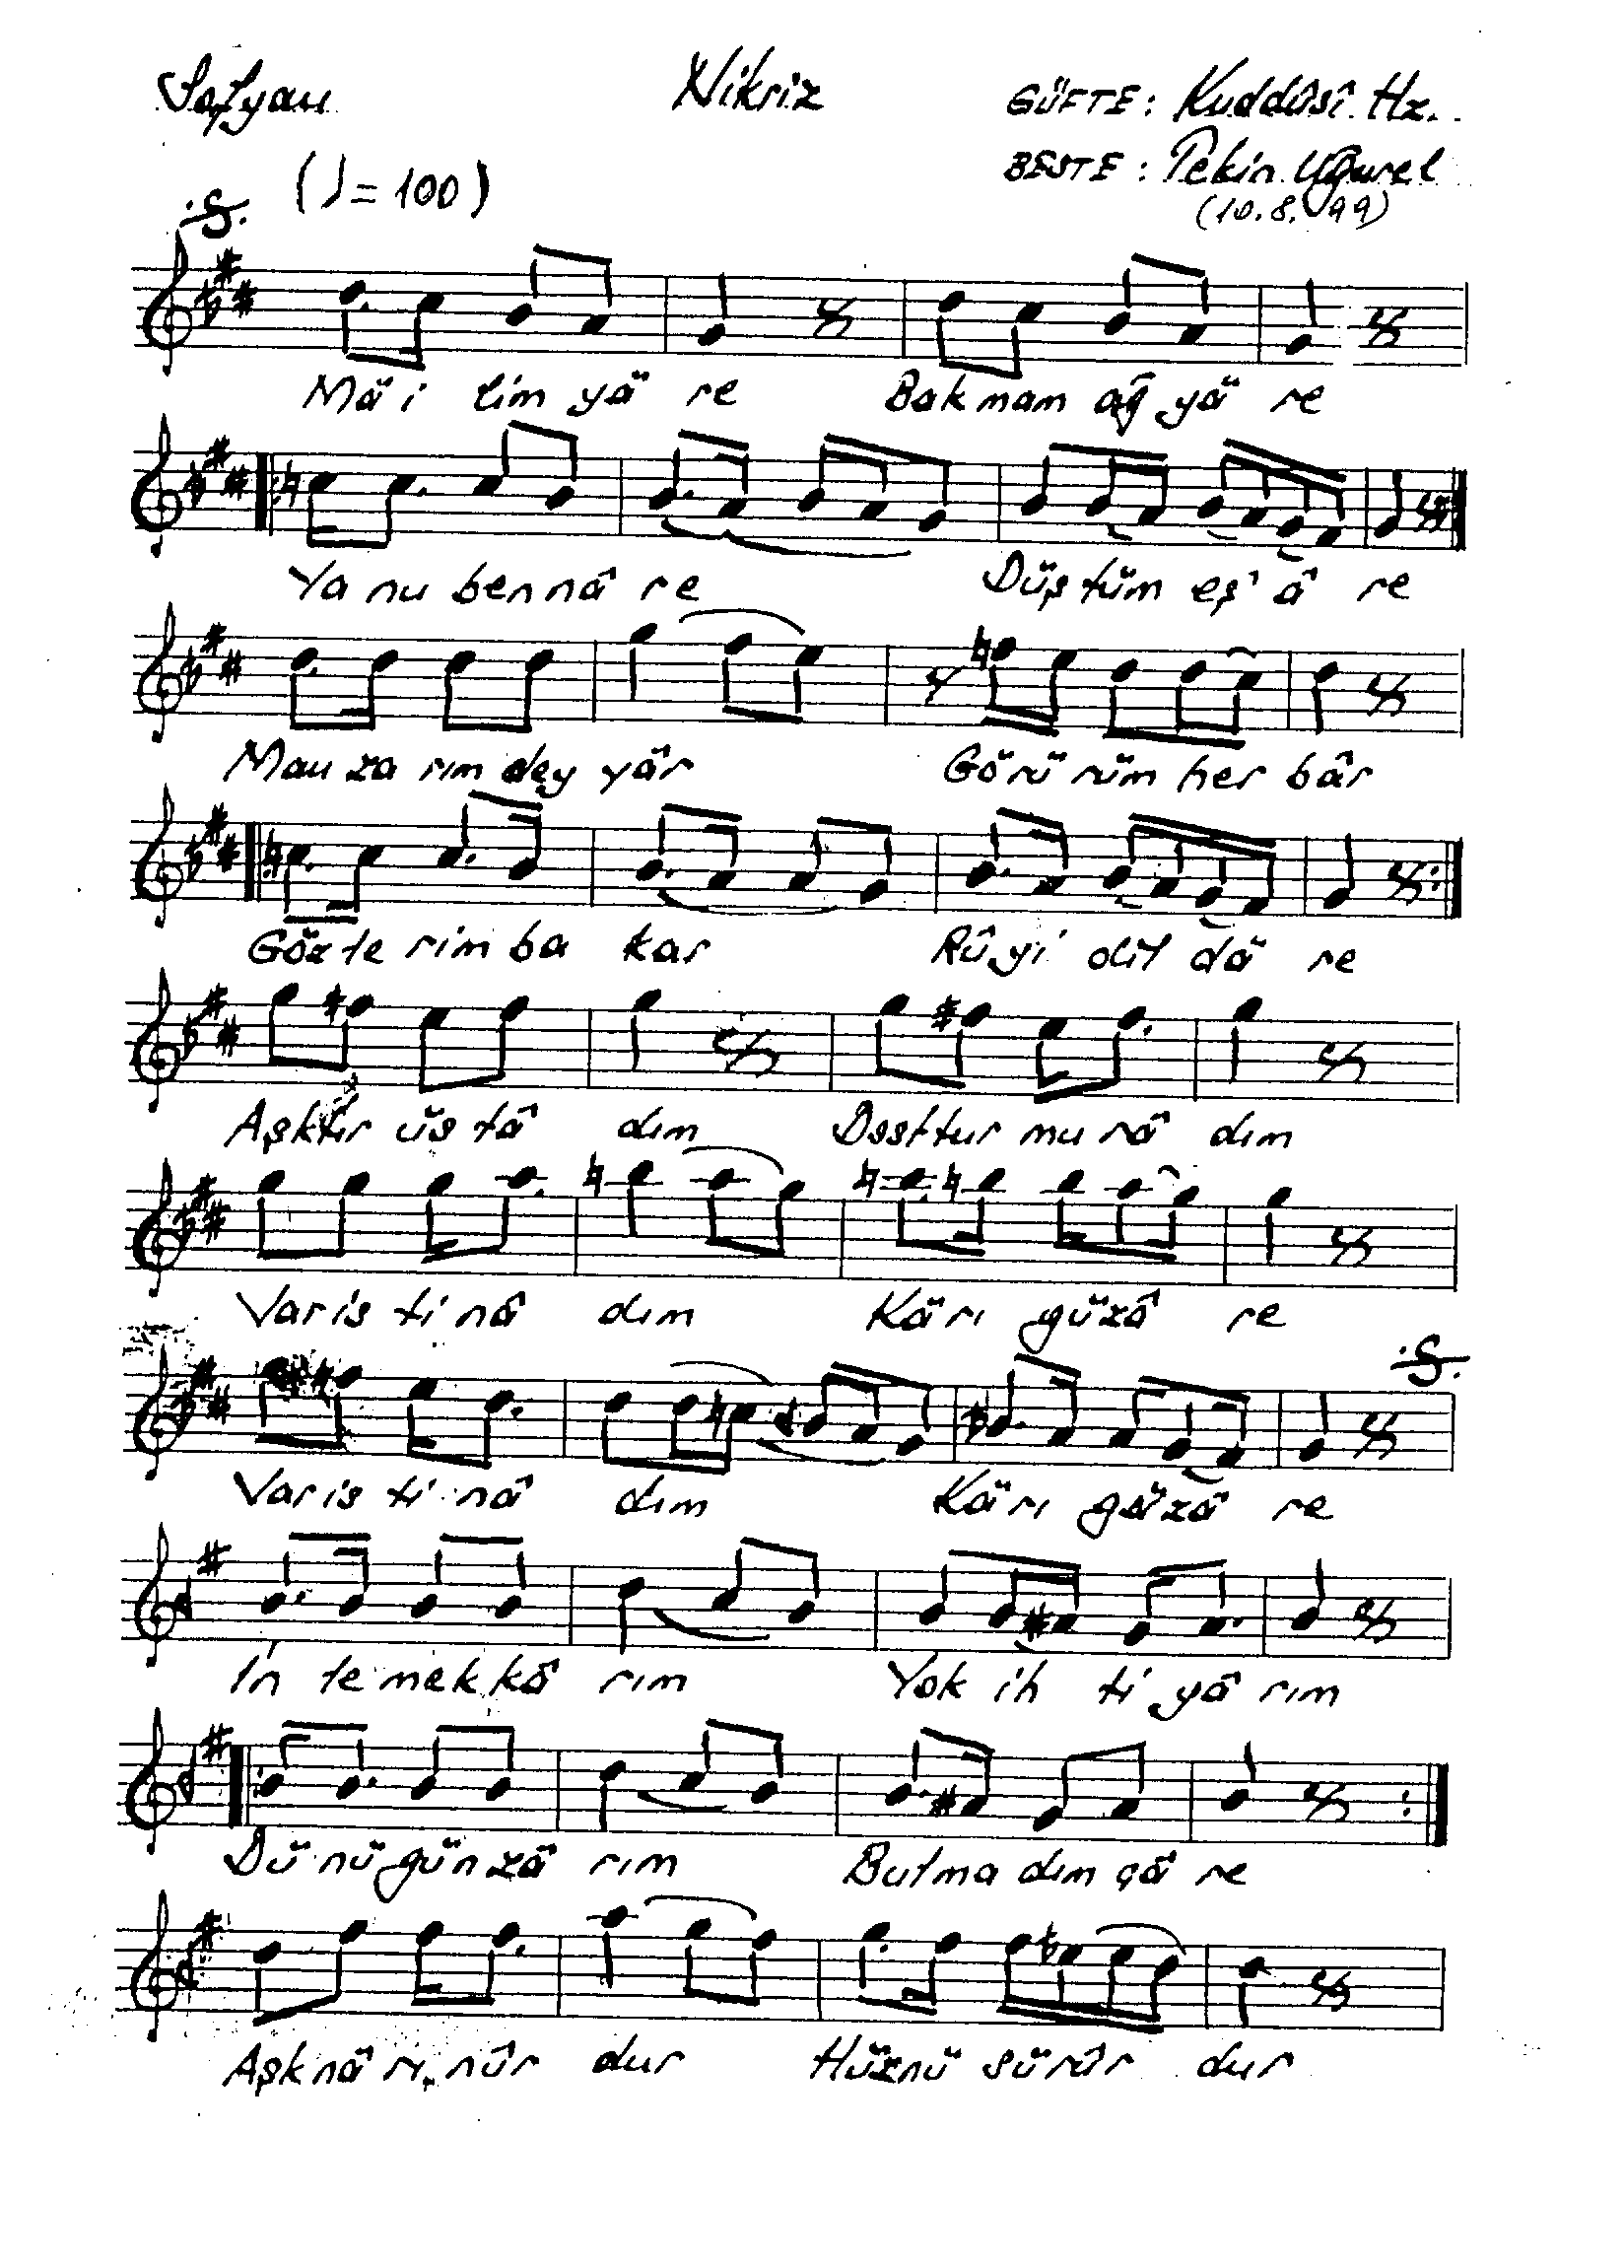 Sofyan Nikriz GÜFTE: Kuddûsî Hz.
BESTE: Pekin Uğurel
(♩=100) (10.8.99)
Mâ i lim yâ re Bak mam ağ yâ re
Ya nu ben nâ re Düş tüm eş' â re
Man za rım dey yâr Gö rü rüm her bâr
Göz le rim ba kar Rû yi dil dâ re
Aşk tır üs tâ dım Dost tur mu râ dım
Var is ti nâ dım Kâ rı gü zâ re
Var is ti nâ dım Kâ rı gü zâ re
İn le mek kâ rım Yok ih ti yâ rım
Dü nü gün zâ rım Bul ma dım çâ re
Aşk nâ rı nûr dur Hüz nü sü rûr dur